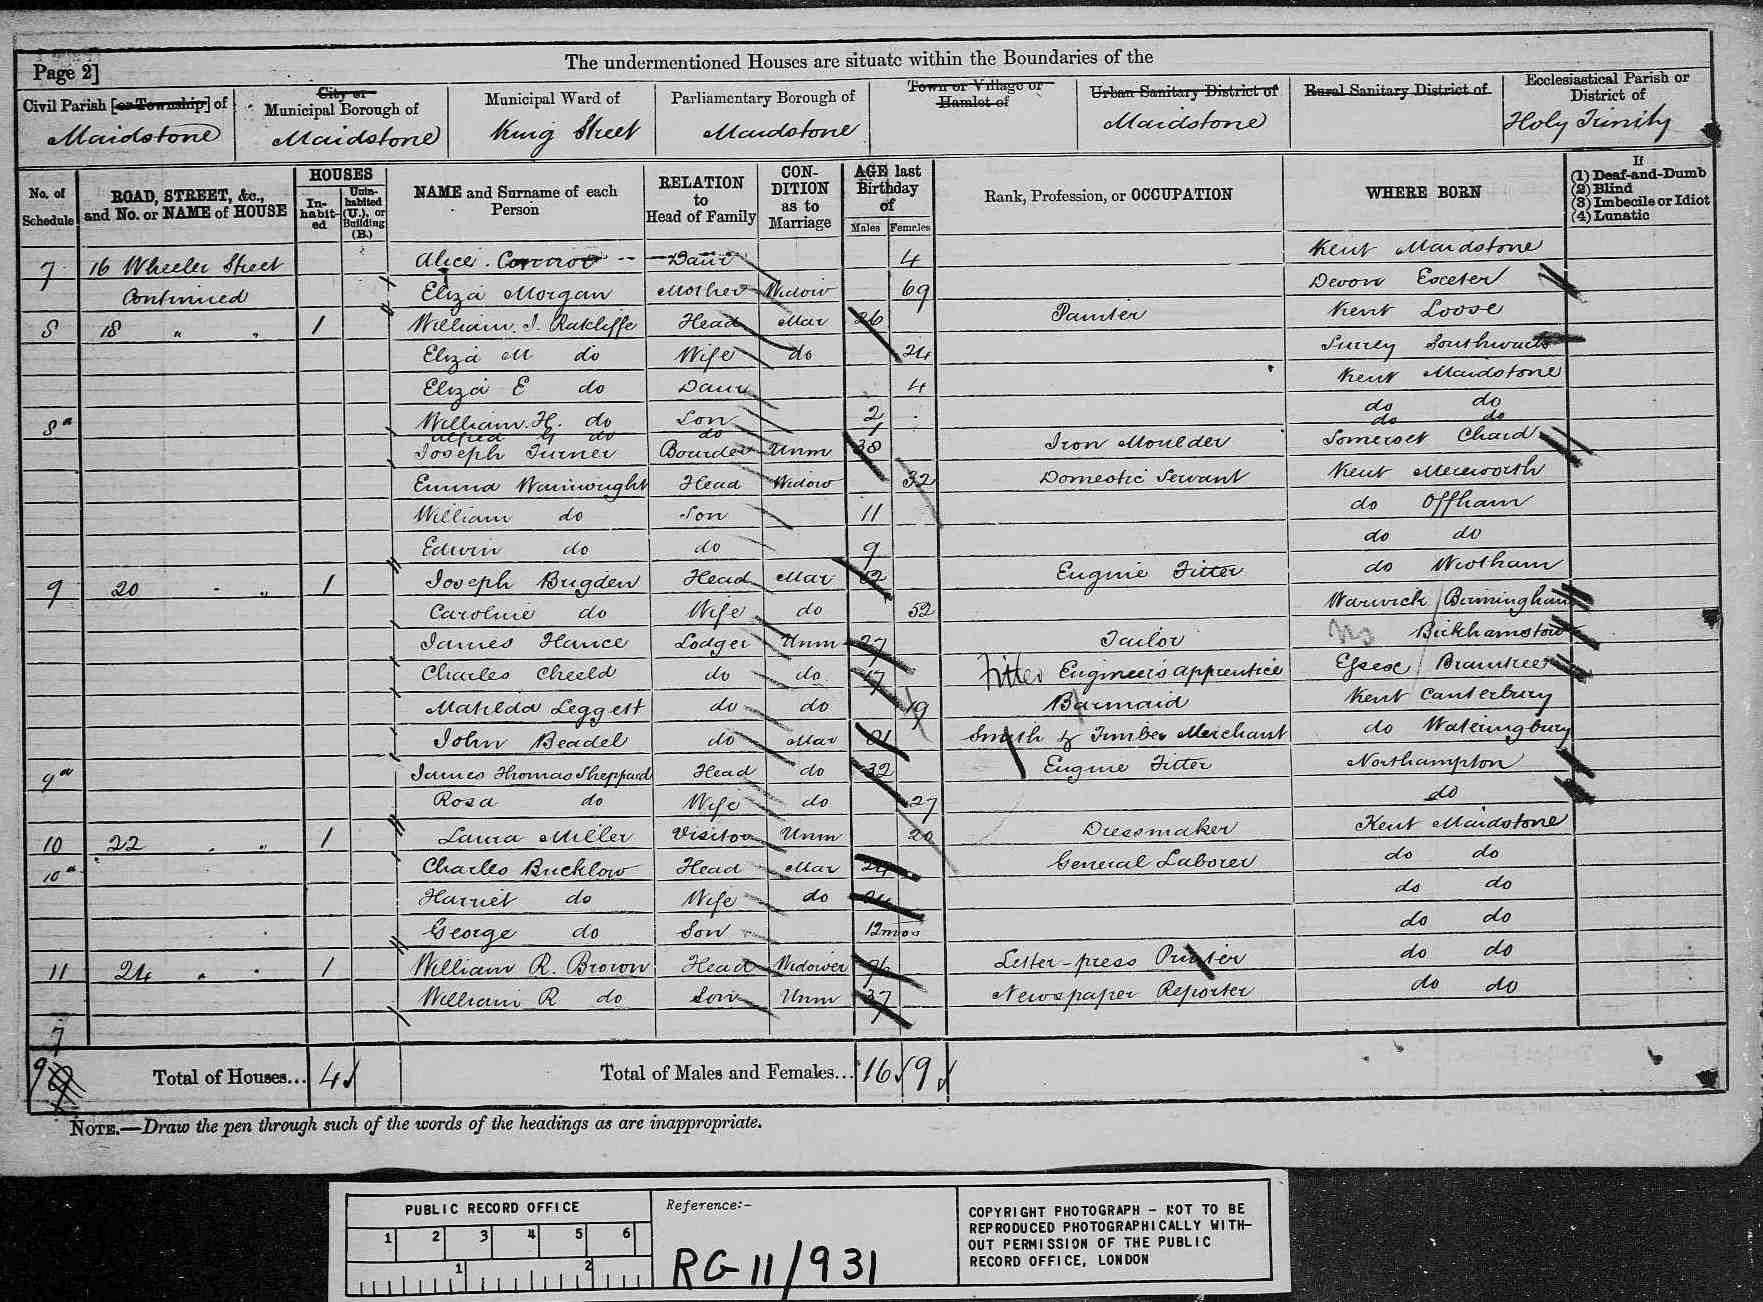 The undermentioned Houses are situate within the Boundaries of the
Page 2]
Civil Parish [or Township] of
Maidstone
City or
Municipal Borough of
Maidstone
Municipal Ward of
King Street
Parliamentary Borough of
Maidstone
Town or Village or
Hamlet of
Urban Sanitary District of
Maidstone
Rural Sanitary District of
Ecclesiastical Parish or
District of
Holy Trinity
No. of
Schedule
ROAD, STREET, &c.,
and No. or NAME of HOUSE
HOUSES
In-
habit-
ed
Unin-
habited
(U.), or
Building
(B.)
NAME and Surname of each
Person
RELATION
to
Head of Family
CON-
DITION
as to
Marriage
AGE last
Birthday
of
Males Females
Rank, Profession, or OCCUPATION
WHERE BORN
If
(1) Deaf-and-Dumb
(2) Blind
(3) Imbecile or Idiot
(4) Lunatic
7 16 Wheeler Street Alice Daur 4 Kent Maidstone
Continued Eliza Morgan Mother Widow 69 Devon Exeter
8 18 " " 1 William. J. Ratcliffe Head Mar 26 Painter Kent Loose
Eliza M do Wife do 24 Surrey Southwark
Eliza E do Daur 4 Kent Maidstone
William. H. do Son 2 do do
Alfred G do do 1 do do
8a Joseph Turner Boarder Unm 38 Iron Moulder Somerset Chard
Emma Wainwright Head Widow 32 Domestic Servant Kent Mereworth
William do Son 11 do Offham
Edwin do do 9 do do
9 20 " " 1 Joseph Brigden Head Mar 52 Engine Fitter do Wrotham
Caroline do Wife do 52 Warwick Birmingham
James Hance Lodger Unm 27 Tailor Bickhamstow
Charles Cheeld do do 17 Fitter Engineers apprentice Essex Braintree
Matilda Leggett do do 19 Barmaid Kent Canterbury
John Beadel do Mar 61 Smith & Timber Merchant do Wateringbury
9a James Thomas Sheppard Head do 32 Engine Fitter Northampton
Rosa do Wife do 27 do
10 22 " " 1 Laura Miller Visitor Unm 20 Dressmaker Kent Maidstone
10a Charles Bucklow Head Mar 24 General Laborer do do
Harriet do Wife do 24 do do
George do Son 12mos do do
11 24 " " 1 William R. Brown Head Widower 76 Letter-press Printer do do
William R do Son Unm 37 Newspaper Reporter do do
7
9
Total of Houses... 4
Total of Males and Females... 16 9
NOTE.—Draw the pen through such of the words of the headings as are inappropriate.
PUBLIC RECORD OFFICE
1 2 3 4 5 6
1 2
Reference:-
RG 11/931
COPYRIGHT PHOTOGRAPH - NOT TO BE
REPRODUCED PHOTOGRAPHICALLY WITH-
OUT PERMISSION OF THE PUBLIC
RECORD OFFICE, LONDON